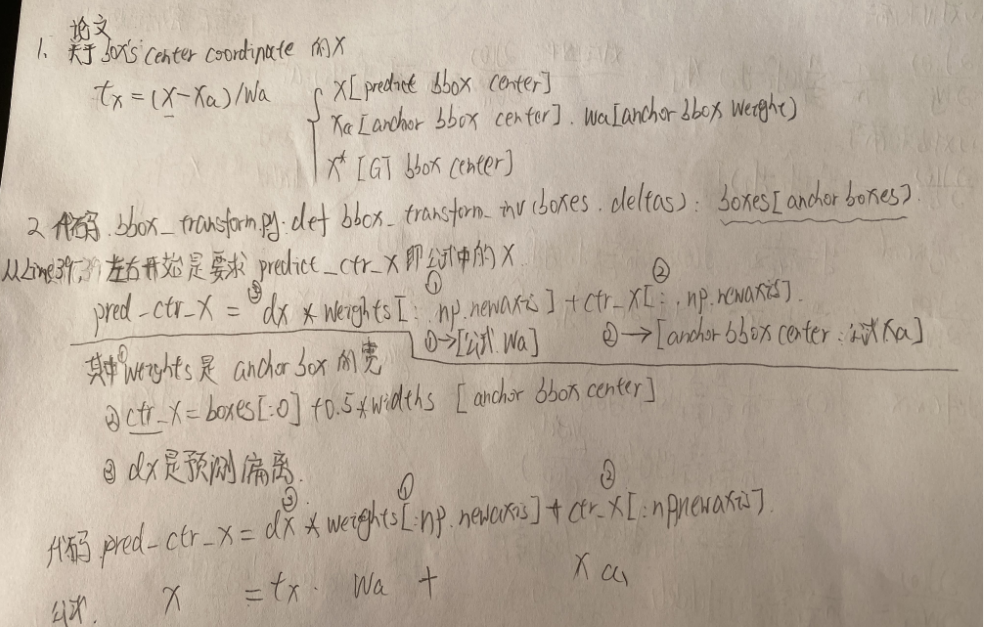 论文
1. 关于 box's center coordinate 的x
tx = (x-xa)/wa
x[predict bbox center]
xa[anchor bbox center]. wa[anchor bbox weight)
x* [GT bbox center]
2 代码. bbox_transform.py: def bbox_transform_inv(boxes.deltas): boxes[anchor boxes).
从Line39, 左右开始是要求 predict_ctr_x 即公式中的 X
③ ① ②
pred_ctr_x = dx * weights[: np.newaxis] + ctr_x[:, np.newaxis].
①→[公式.wa] ②→[anchor bbox center:公式Xa]
其中①weights是 anchor box 的宽
②ctr_x = boxes[:0] +0.5*widths [anchor bbox center]
③ dx是预测偏离.
③ ① ②
代码 pred_ctr_x = dx * weights[:np.newaxis] + ctr_x[:npnewaxis].
公式. X = tx · wa + xa